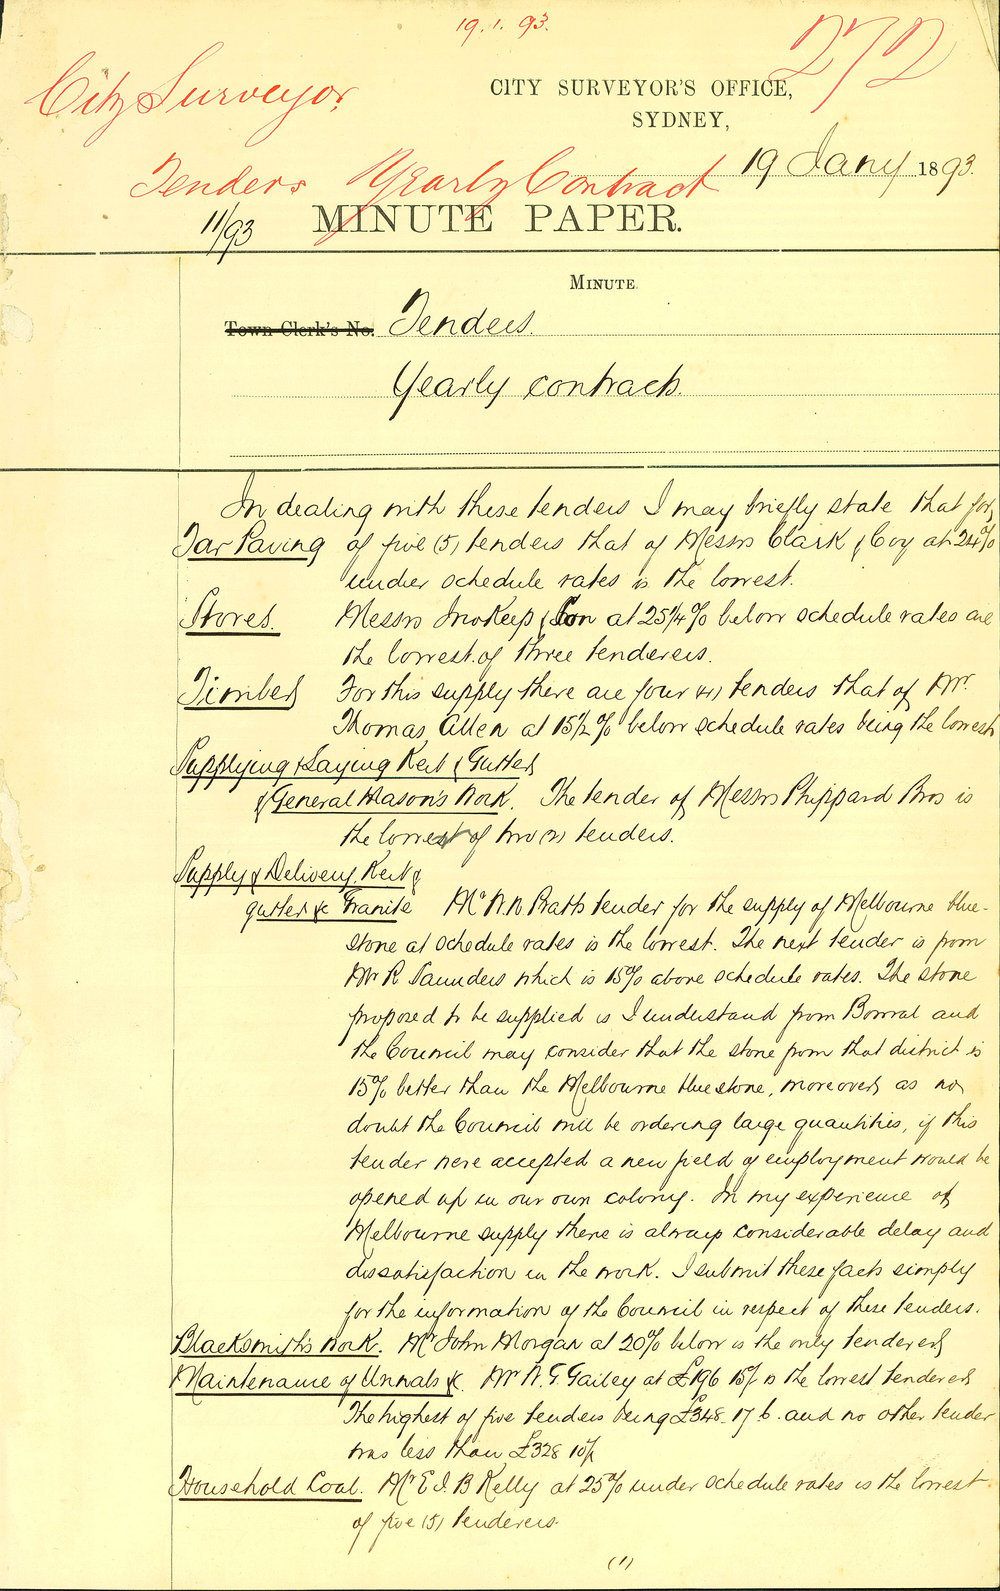 19.1.93.
272
City Surveyor,
CITY SURVEYOR'S OFFICE,
SYDNEY,
19 Jany 1893.
Tenders Yearly Contract
11/93 MINUTE PAPER.
MINUTE
Town Clerk's No. Tenders.
Yearly contracts.
In dealing with these tenders I may briefly state that for
Tar Paving of five (5) tenders that of Messrs Clark & Coy at 24%
under schedule rates is the lowest.
Stores. Messrs Jno Keep & Son at 25 1/4 % below schedule rates are
the lowest of three tenderers.
Timber For this supply there are four (4) tenders that of Mr.
Thomas Allen at 15 1/2 % below schedule rates being the lowest
Supplying & Laying Kerb & Gutter
& General Mason's Work. The tender of Messrs Phippard Bros is
the lowest of two (2) tenders.
Supply & Delivery, Kerb &
gutter &c Granite Mr W.B. Pratts tender for the supply of Melbourne blue-
stone at schedule rates is the lowest. The next tender is from
Mr R Saunders which is 15% above schedule rates. The stone
proposed to be supplied is I understand from Bowral and
the Council may consider that the stone from that district is
15% better than the Melbourne bluestone, moreover, as no
doubt the Council will be ordering large quantities, if this
tender were accepted a new field of employment would be
opened up in our own colony. In my experience of
Melbourne supply there is always considerable delay and
dissatisfaction in the work. I submit these facts simply
for the information of the Council in respect of these tenders.
Blacksmith's Work. Mr John Morgan at 20% below is the only tenderer
Maintenance of Urinals &c. Mr W. G. Gailey at £196 15/- is the lowest tenderer
The highest of five tenders being £348. 17. 6. and no other tender
was less than £328 10/-
Household Coal. Mr E J. B Kelly at 25% under schedule rates is the lowest
of five (5) tenderers.
(1)